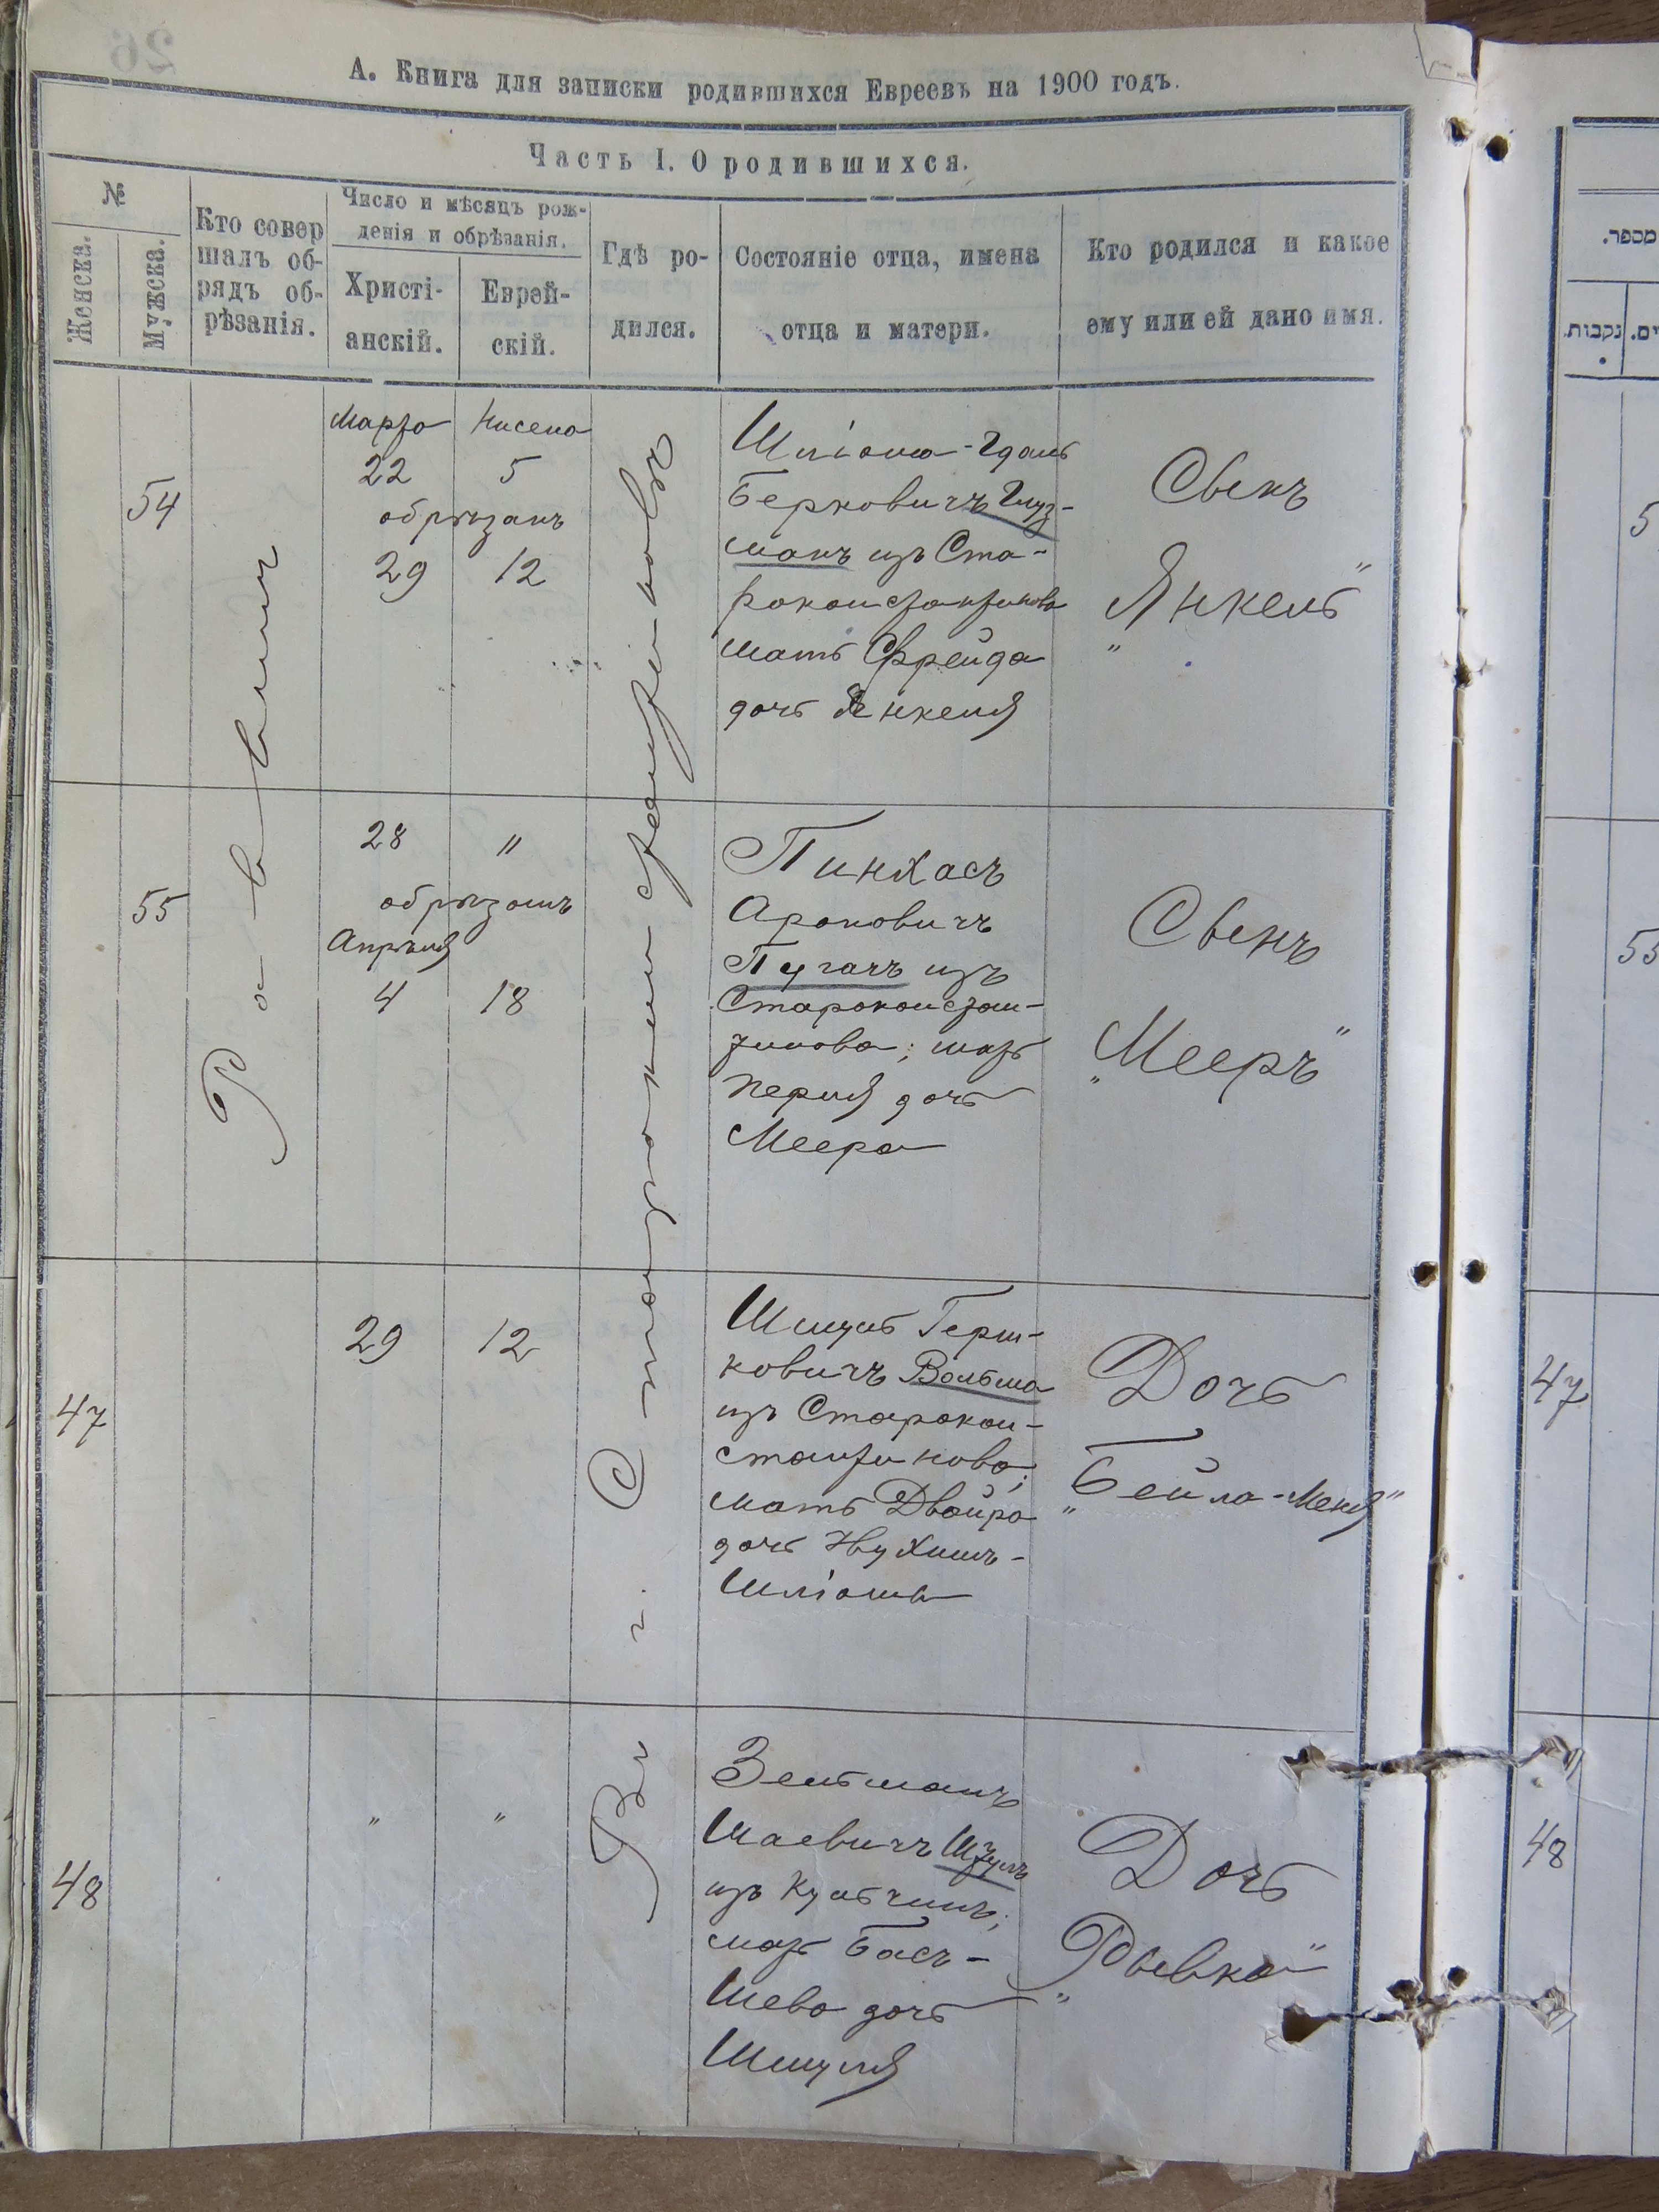 26
А. Книга для записки родившихся Евреевъ на 1900 годъ.
Часть I. О родившихся.
№
Женска.
Мужска.
Кто совер
шалъ об-
рядъ об-
рѣзанія.
Число и мѣсяцъ рож-
денія и обрѣзанія.
Христі-
анскій.
Еврей-
скій.
Гдѣ ро-
дился.
Состояніе отца, имена
отца и матери.
Кто родился и какое
ему или ей дано имя.
Раввинъ
Въ г. Староконстантиновѣ
54
Марта Нисена
22 5
обрѣзанъ
29 12
Шліома-Удаль
Берковичъ Глуз-
манъ изъ Ста-
роконстантинова
мать Фрейда
дочь Янкеля
Сынъ
"Янкель"
55
28 "
обрѣзанъ
Апрѣля
4 18
Пинхасъ
Ароновичъ
Пугачъ изъ
Староконстан-
тинова; мать
Перля дочь
Меера
Сынъ
"Мееръ"
47
29 12
Шмуль Герш-
ковичъ Вольма
изъ Старокон-
стантинова;
мать Двойра
дочь Нухимъ-
Шліомы
Дочь
"Бейла-Меня"
48
" "
Зельманъ
Шаевичъ
изъ Кульчинъ;
мать Басъ-
Шева дочь
Шмуля
Дочь
"Рывка"
מספר.
נקבות.
ים.
5
55
47
48